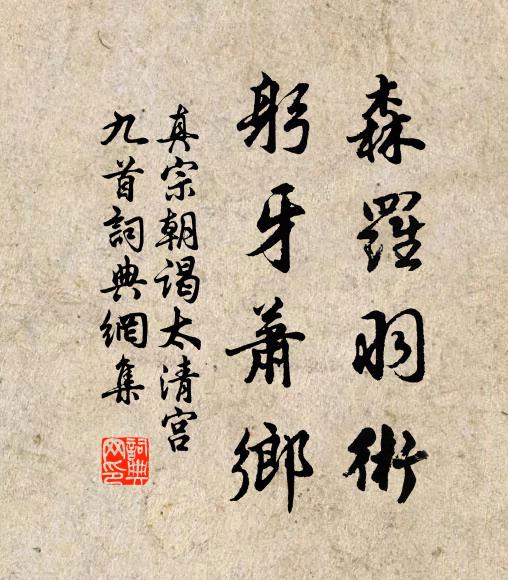 森羅羽術
躬牙蕭鄉
真宗朝謁太清宮
九首詞典網集
詞典網印